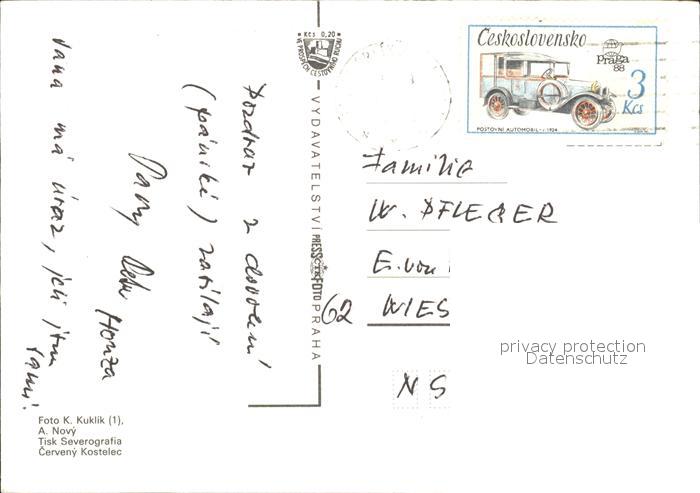 Kčs 0,20
VE PROSPĚCH CESTOVNÍHO RUCHU
Československo
Praga
88
3
Kčs
POŠTOVNÍ AUTOMOBIL - r. 1924
VYDAVATELSTVÍ PRESSFOTO PRAHA
Pozdrav z dovolené
(pánské) zasílají
Dany Petr Honza
Jana má úraz, jeli jsme
sami.
Familie
W. PFLEGER
E. von
62 WIES
N S
privacy protection
Datenschutz
Foto K. Kuklík (1),
A. Nový
Tisk Severografia
Červený Kostelec